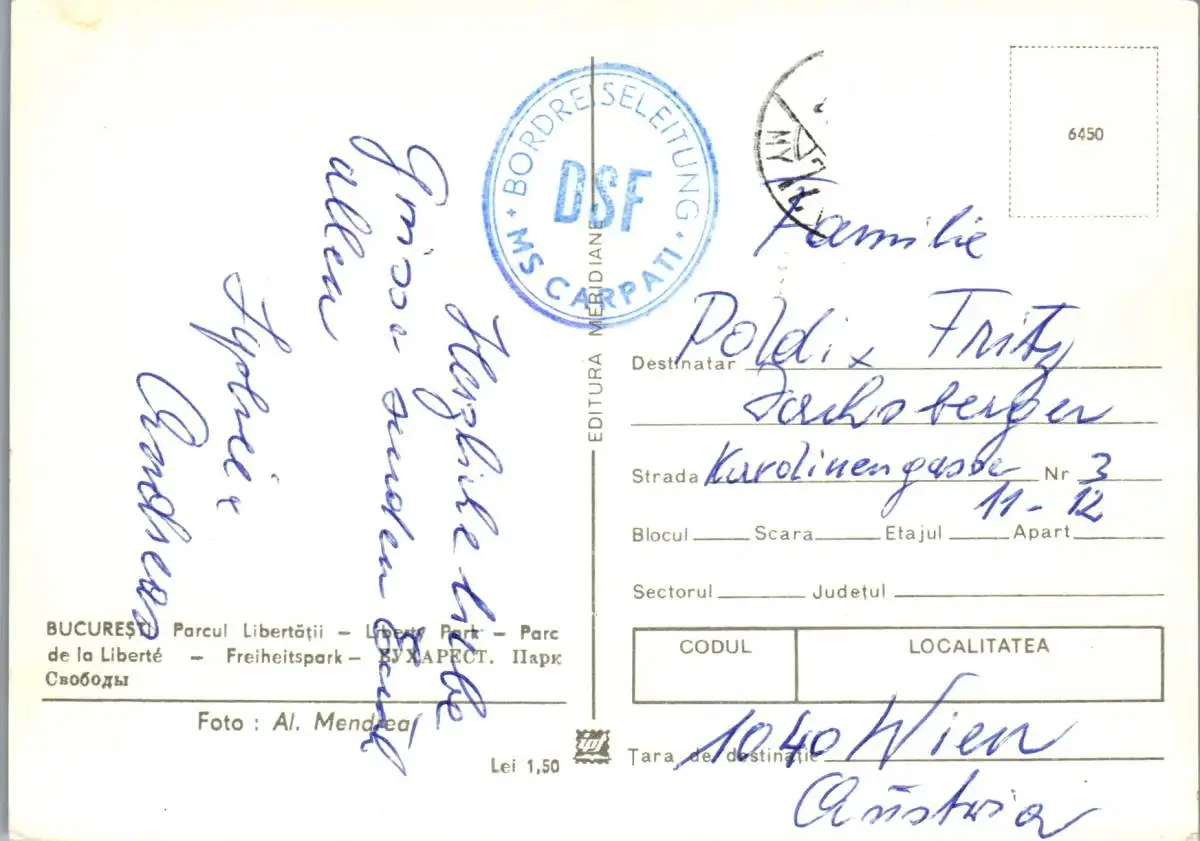 Herzliche liebe
Grüsse senden Euch
allen
Sylvie +
Andreas
BORDREISELEITUNG
DSF
MS CARPATI
6450
EDITURA MERIDIANE
Familie
Destinatar Poldi + Fritz
berger
Strada Karolinengasse Nr 3
11-12
Blocul Scara Etajul Apart
Sectorul Județul
CODUL LOCALITATEA
1040 Wien
Țara de destinație
Austria
BUCUREȘTI. Parcul Libertății – Liberty Park – Parc
de la Liberté – Freiheitspark – БУХАРЕСТ. Парк
Свободы
Foto : Al. Mendrea
Lei 1,50